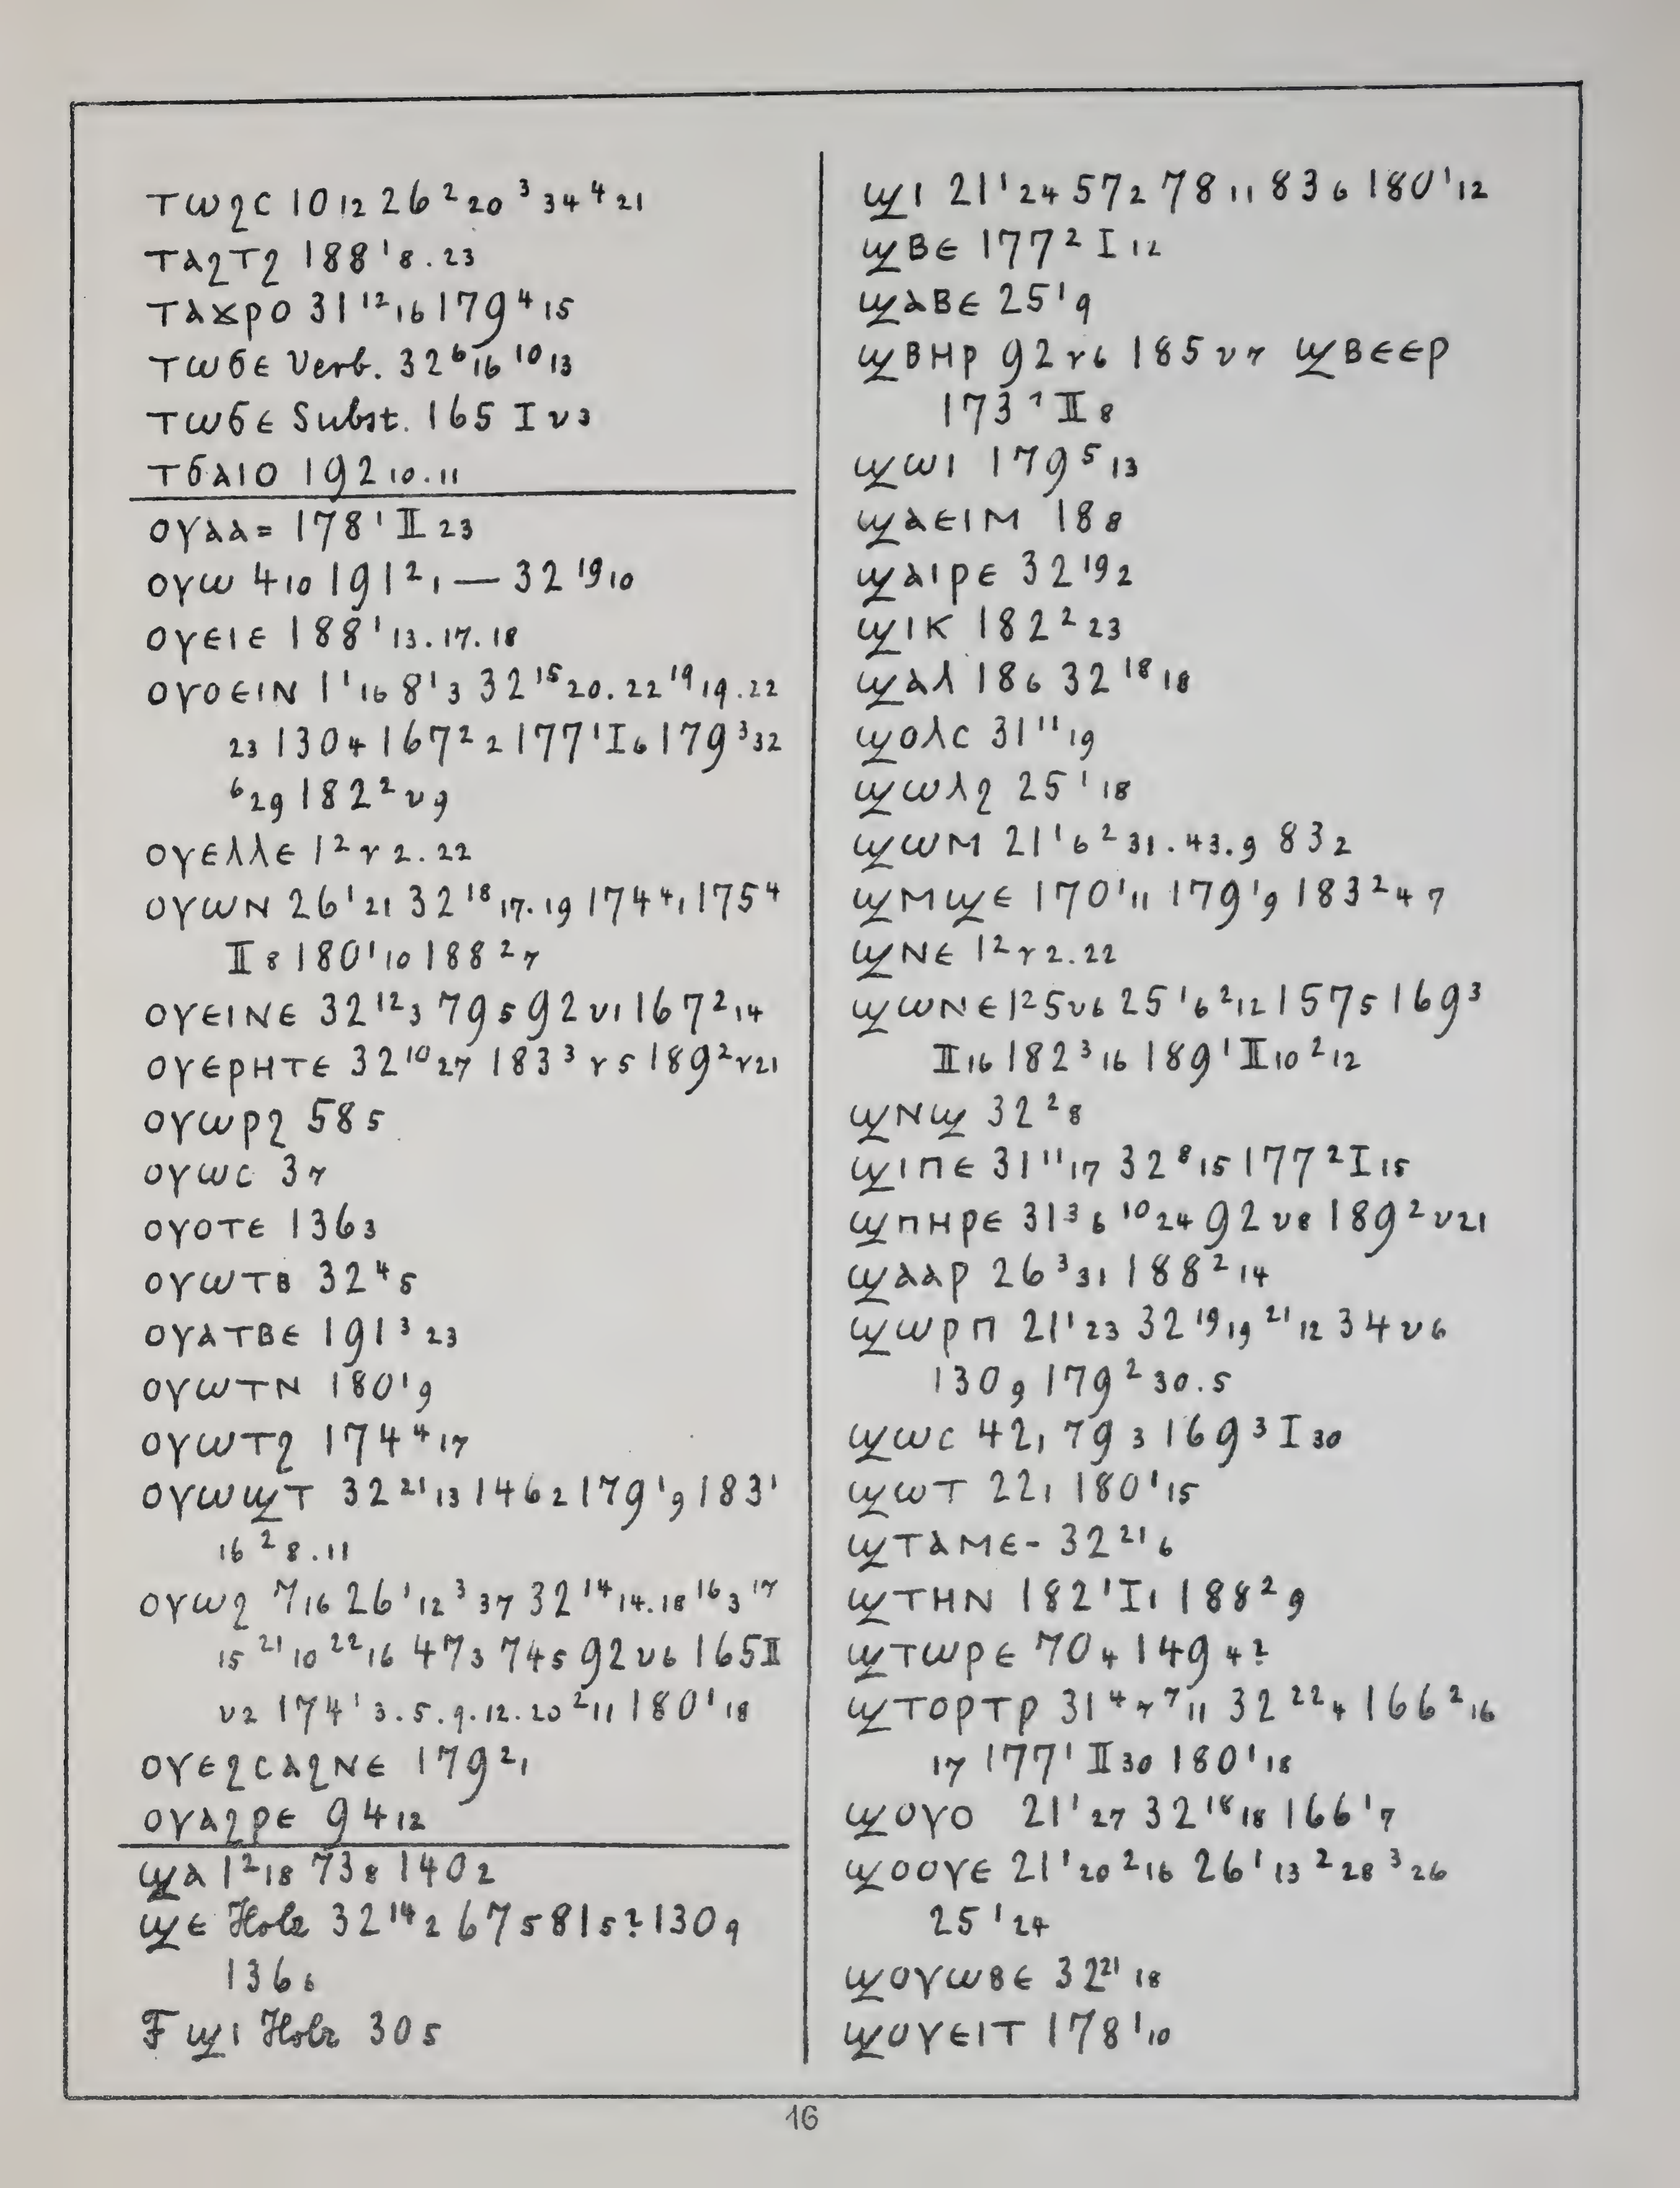 ⲧⲱϩⲥ 10 ₁₂ 26 ² ₂₀ ³ ₃₄ ⁴ ₂₁
ⲧⲁϩⲧϩ 188 ¹ ₈.₂₃
ⲧⲁϫⲣⲟ 31 ¹² ₁₆ 179 ⁴ ₁₅
ⲧⲱϭⲉ Verb. 32 ⁶ ₁₆ ¹⁰ ₁₃
ⲧⲱϭⲉ Subst. 165 I v ₃
ⲧϭⲁⲓⲟ 192 ₁₀.₁₁
ⲟⲩⲁⲁ= 178 ¹ II ₂₃
ⲟⲩⲱ 4 ₁₀ 191 ² ₁ — 32 ¹⁹ ₁₀
ⲟⲩⲉⲓⲉ 188 ¹ ₁₃.₁₇.₁₈
ⲟⲩⲟⲉⲓⲛ 1 ¹ ₁₆ 8 ¹ ₃ 32 ¹⁵ ₂₀.₂₂ ¹⁹ ₁₉.₂₂
₂₃ 130 ₄ 167 ² ₂ 177 ¹ I ₆ 179 ³ ₃₂
⁶ ₂₉ 182 ² v ₉
ⲟⲩⲉⲗⲗⲉ 1 ² r ₂.₂₂
ⲟⲩⲱⲛ 26 ¹ ₂₁ 32 ¹⁸ ₁₇.₁₉ 174 ⁴ ₁ 175 ⁴
II ₈ 180 ¹ ₁₀ 188 ² ₇
ⲟⲩⲉⲓⲛⲉ 32 ¹² ₃ 79 ₅ 92 v ₁ 167 ² ₁₄
ⲟⲩⲉⲣⲏⲧⲉ 32 ¹⁰ ₂₇ 183 ³ r ₅ 189 ² r ₂₁
ⲟⲩⲱⲣϩ 58 ₅
ⲟⲩⲱⲥ 3 ₇
ⲟⲩⲟⲧⲉ 136 ₃
ⲟⲩⲱⲧⲃ 32 ⁴ ₅
ⲟⲩⲁⲧⲃⲉ 191 ³ ₂₃
ⲟⲩⲱⲧⲛ 180 ¹ ₉
ⲟⲩⲱⲧϩ 174 ⁴ ₁₇
ⲟⲩⲱϣⲧ 32 ²¹ ₁₃ 146 ₂ 179 ¹ ₉ 183 ¹
₁₆ ² ₈.₁₁
ⲟⲩⲱϩ 7 ₁₆ 26 ¹ ₁₂ ³ ₃₇ 32 ¹⁴ ₁₄.₁₈ ¹⁶ ₃ ¹⁷
₁₅ ²¹ ₁₀ ²² ₁₆ 47 ₃ 74 ₅ 92 v ₆ 165 II
v ₂ 174 ¹ ₃.₅.₉.₁₂.₂₀ ² ₁₁ 180 ¹ ₁₈
ⲟⲩⲉϩⲥⲁϩⲛⲉ 179 ² ₁
ⲟⲩⲁϩⲣⲉ 94 ₁₂
ϣⲁ 1 ² ₁₈ 73 ₈ 140 ₂
ϣⲉ Holz 32 ¹⁴ ₂ 67 ₅ 81 ₅? 130 ₉
136 ₆
F ϣⲓ Holz 30 ₅
ϣⲓ 21 ¹ ₂₄ 57 ₂ 78 ₁₁ 83 ₆ 180 ¹ ₁₂
ϣⲃⲉ 177 ² I ₁₂
ϣⲁⲃⲉ 25 ¹ ₉
ϣⲃⲏⲣ 92 r ₆ 185 v ₇ ϣⲃⲉⲉⲣ
173 ¹ II ₈
ϣⲱⲓ 179 ⁵ ₁₃
ϣⲁⲉⲓⲙ 18 ₈
ϣⲁⲓⲣⲉ 32 ¹⁹ ₂
ϣⲓⲕ 182 ² ₂₃
ϣⲁⲗ 18 ₆ 32 ¹⁸ ₁₈
ϣⲟⲗⲥ 31 ¹¹ ₁₉
ϣⲱⲗϩ 25 ¹ ₁₈
ϣⲱⲙ 21 ¹ ₆ ² ₃₁.₄₃.₉ 83 ₂
ϣⲙϣⲉ 170 ¹ ₁₁ 179 ¹ ₉ 183 ² ₄ ₇
ϣⲛⲉ 1 ² r ₂.₂₂
ϣⲱⲛⲉ 1 ² 5 v ₆ 25 ¹ ₆ ² ₁₂ 157 ₅ 169 ³
II ₁₆ 182 ³ ₁₆ 189 ¹ II ₁₀ ² ₁₂
ϣⲛϣ 32 ² ₈
ϣⲓⲡⲉ 31 ¹¹ ₁₇ 32 ⁸ ₁₅ 177 ² I ₁₅
ϣⲡⲏⲣⲉ 31 ³ ₆ ¹⁰ ₂₄ 92 v ₈ 189 ² v ₂₁
ϣⲁⲁⲣ 26 ³ ₃₁ 188 ² ₁₄
ϣⲱⲣⲡ 21 ¹ ₂₃ 32 ¹⁹ ₁₉ ²¹ ₁₂ 34 v ₆
130 ₉ 179 ² ₃₀.₅
ϣⲱⲥ 42 ₁ 79 ₃ 169 ³ I ₃₀
ϣⲱⲧ 22 ₁ 180 ¹ ₁₅
ϣⲧⲁⲙⲉ- 32 ²¹ ₆
ϣⲧⲏⲛ 182 ¹ I ₁ 188 ² ₉
ϣⲧⲱⲣⲉ 70 ₄ 149 ₄?
ϣⲧⲟⲣⲧⲣ 31 ⁴ ₇ ⁷ ₁₁ 32 ²² ₄ 166 ² ₁₆
₁₇ 177 ¹ II ₃₀ 180 ¹ ₁₈
ϣⲟⲩⲟ 21 ¹ ₂₇ 32 ¹⁸ ₁₈ 166 ¹ ₇
ϣⲟⲟⲩⲉ 21 ¹ ₂₀ ² ₁₆ 26 ¹ ₁₃ ² ₂₈ ³ ₂₆
25 ¹ ₂₄
ϣⲟⲩⲱⲃⲉ 32 ²¹ ₁₈
ϣⲟⲩⲉⲓⲧ 178 ¹ ₁₀
16